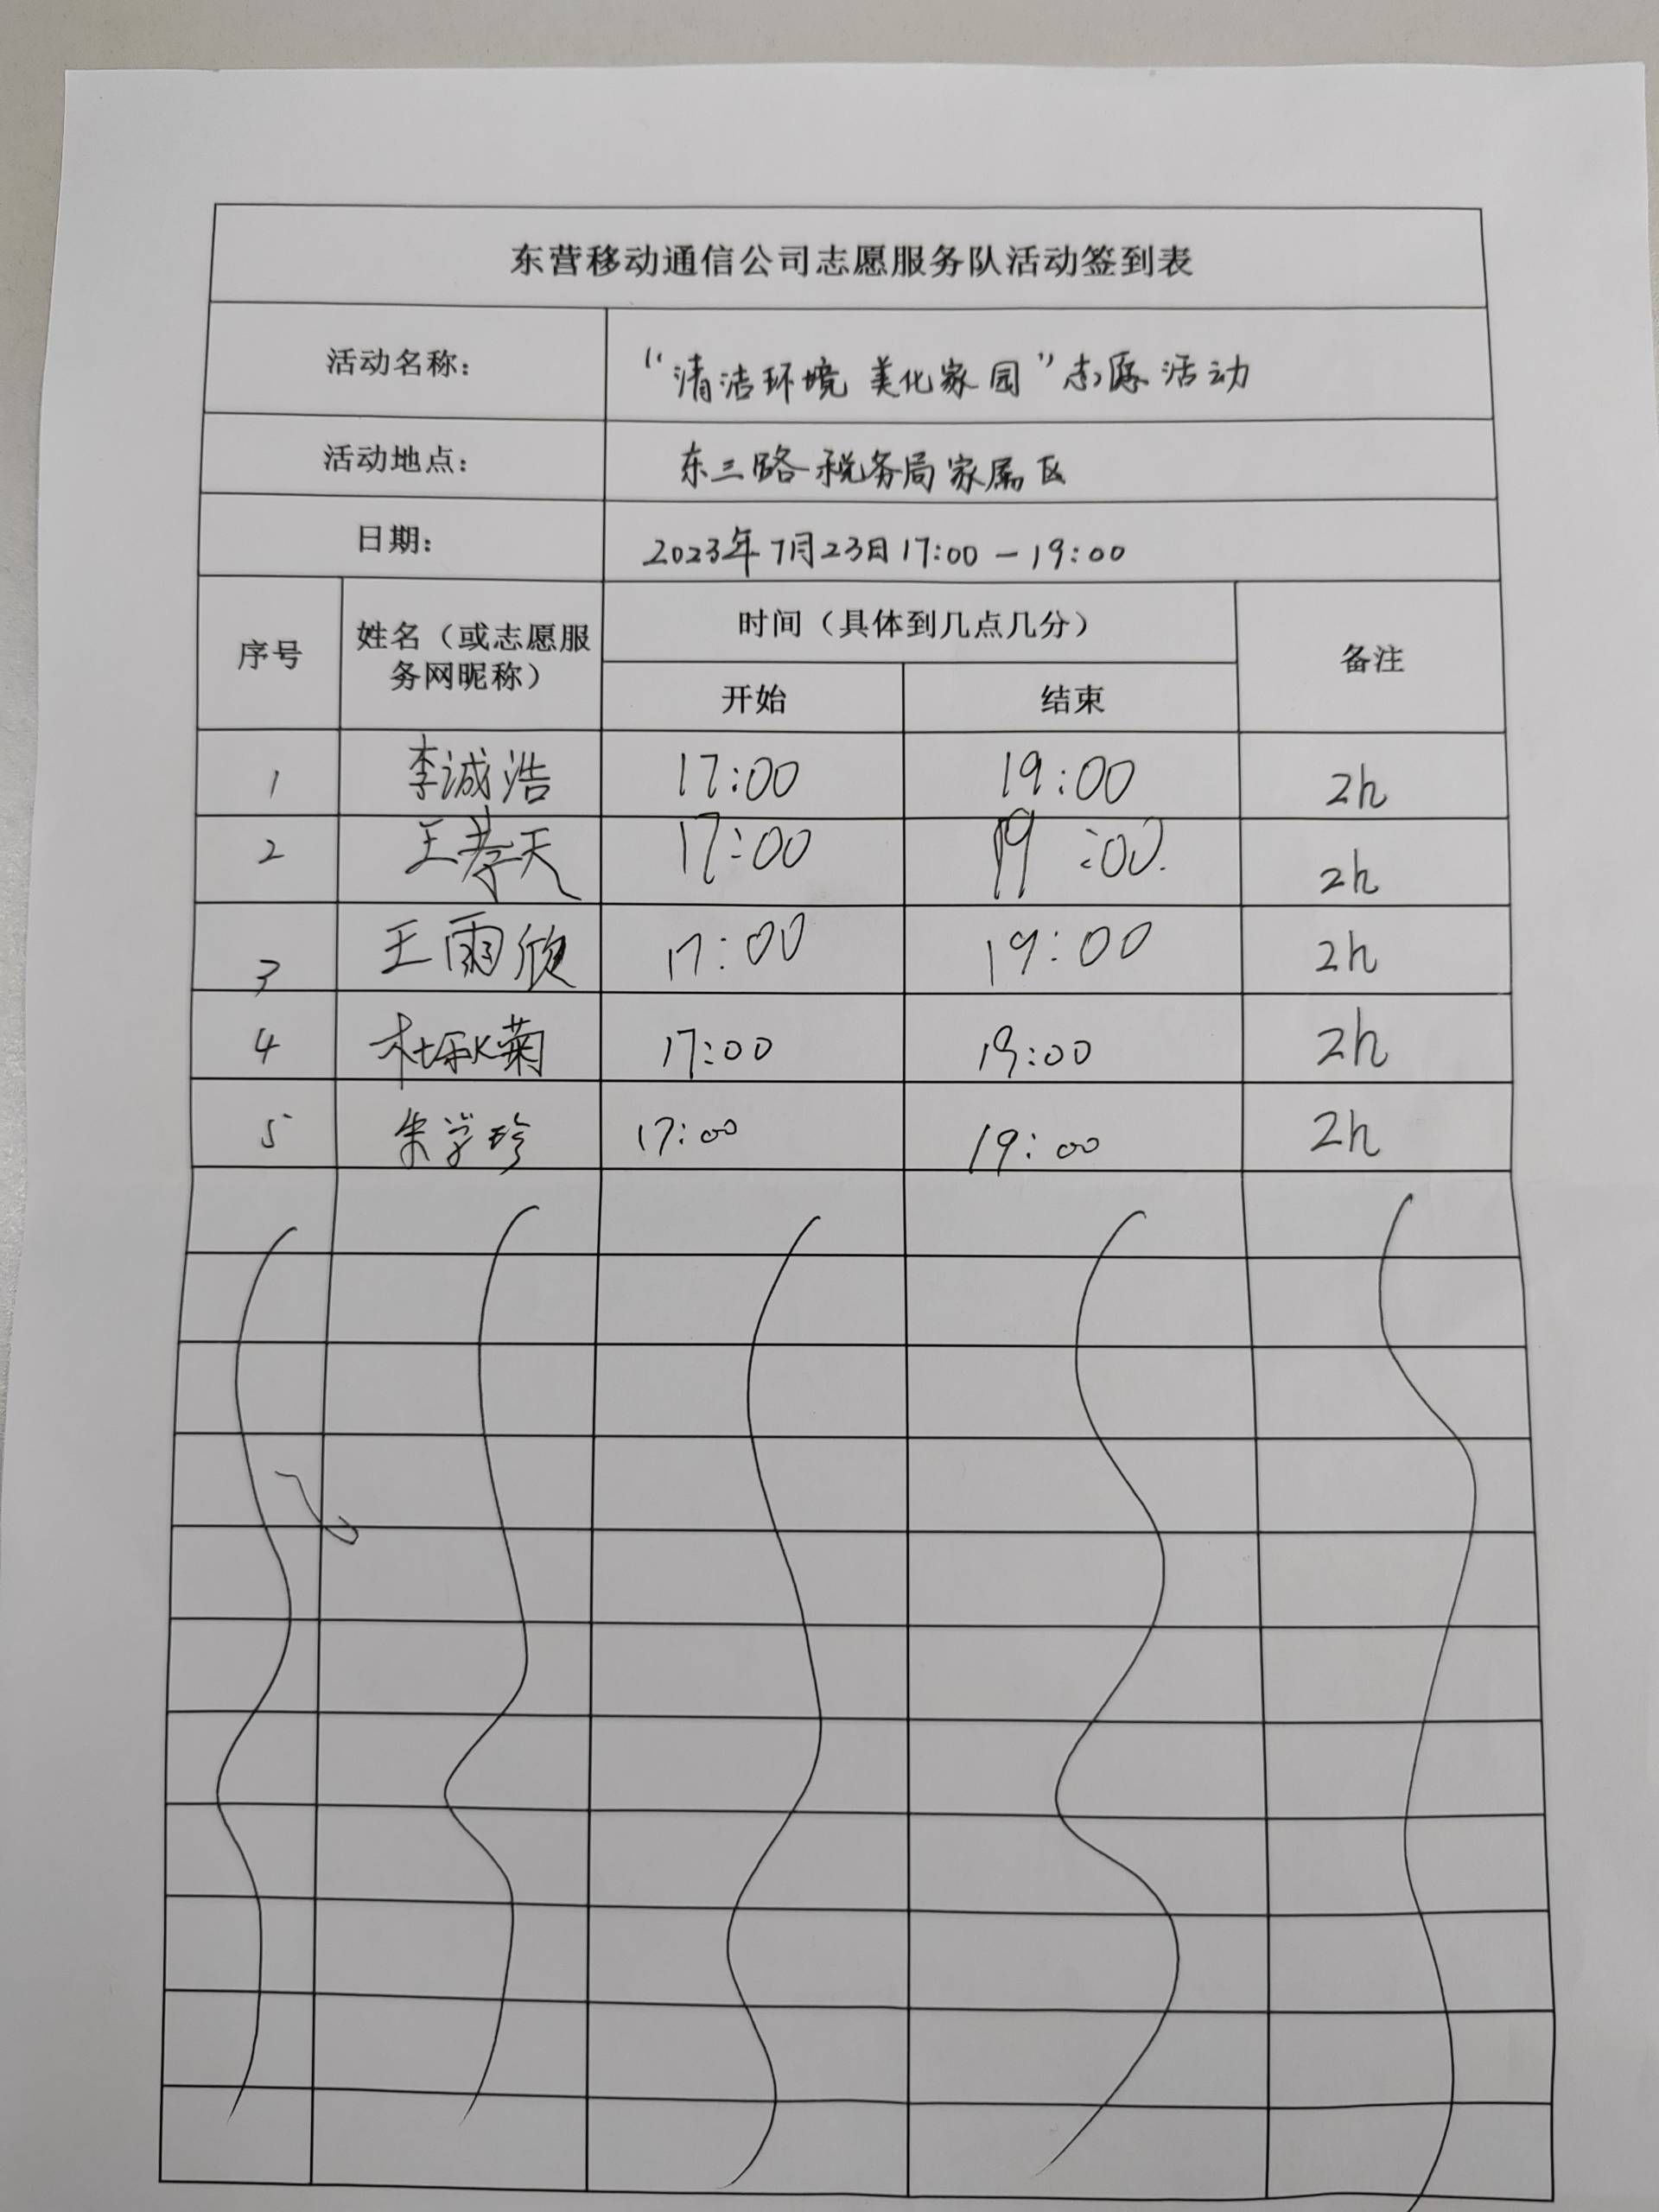 东营移动通信公司志愿服务队活动签到表
活动名称: “清洁环境 美化家园”志愿活动
活动地点: 东三路税务局家属区
日期: 2023年7月23日17:00-19:00
序号 姓名（或志愿服务网昵称） 时间（具体到几点几分） 备注
开始 结束
1 李诚浩 17:00 19:00 2h
2 王孝天 17:00 19:00. 2h
3 王雨欣 17:00 19:00 2h
4 杜秋菊 17:00 19:00 2h
5 朱学珍 17:00 19:00 2h